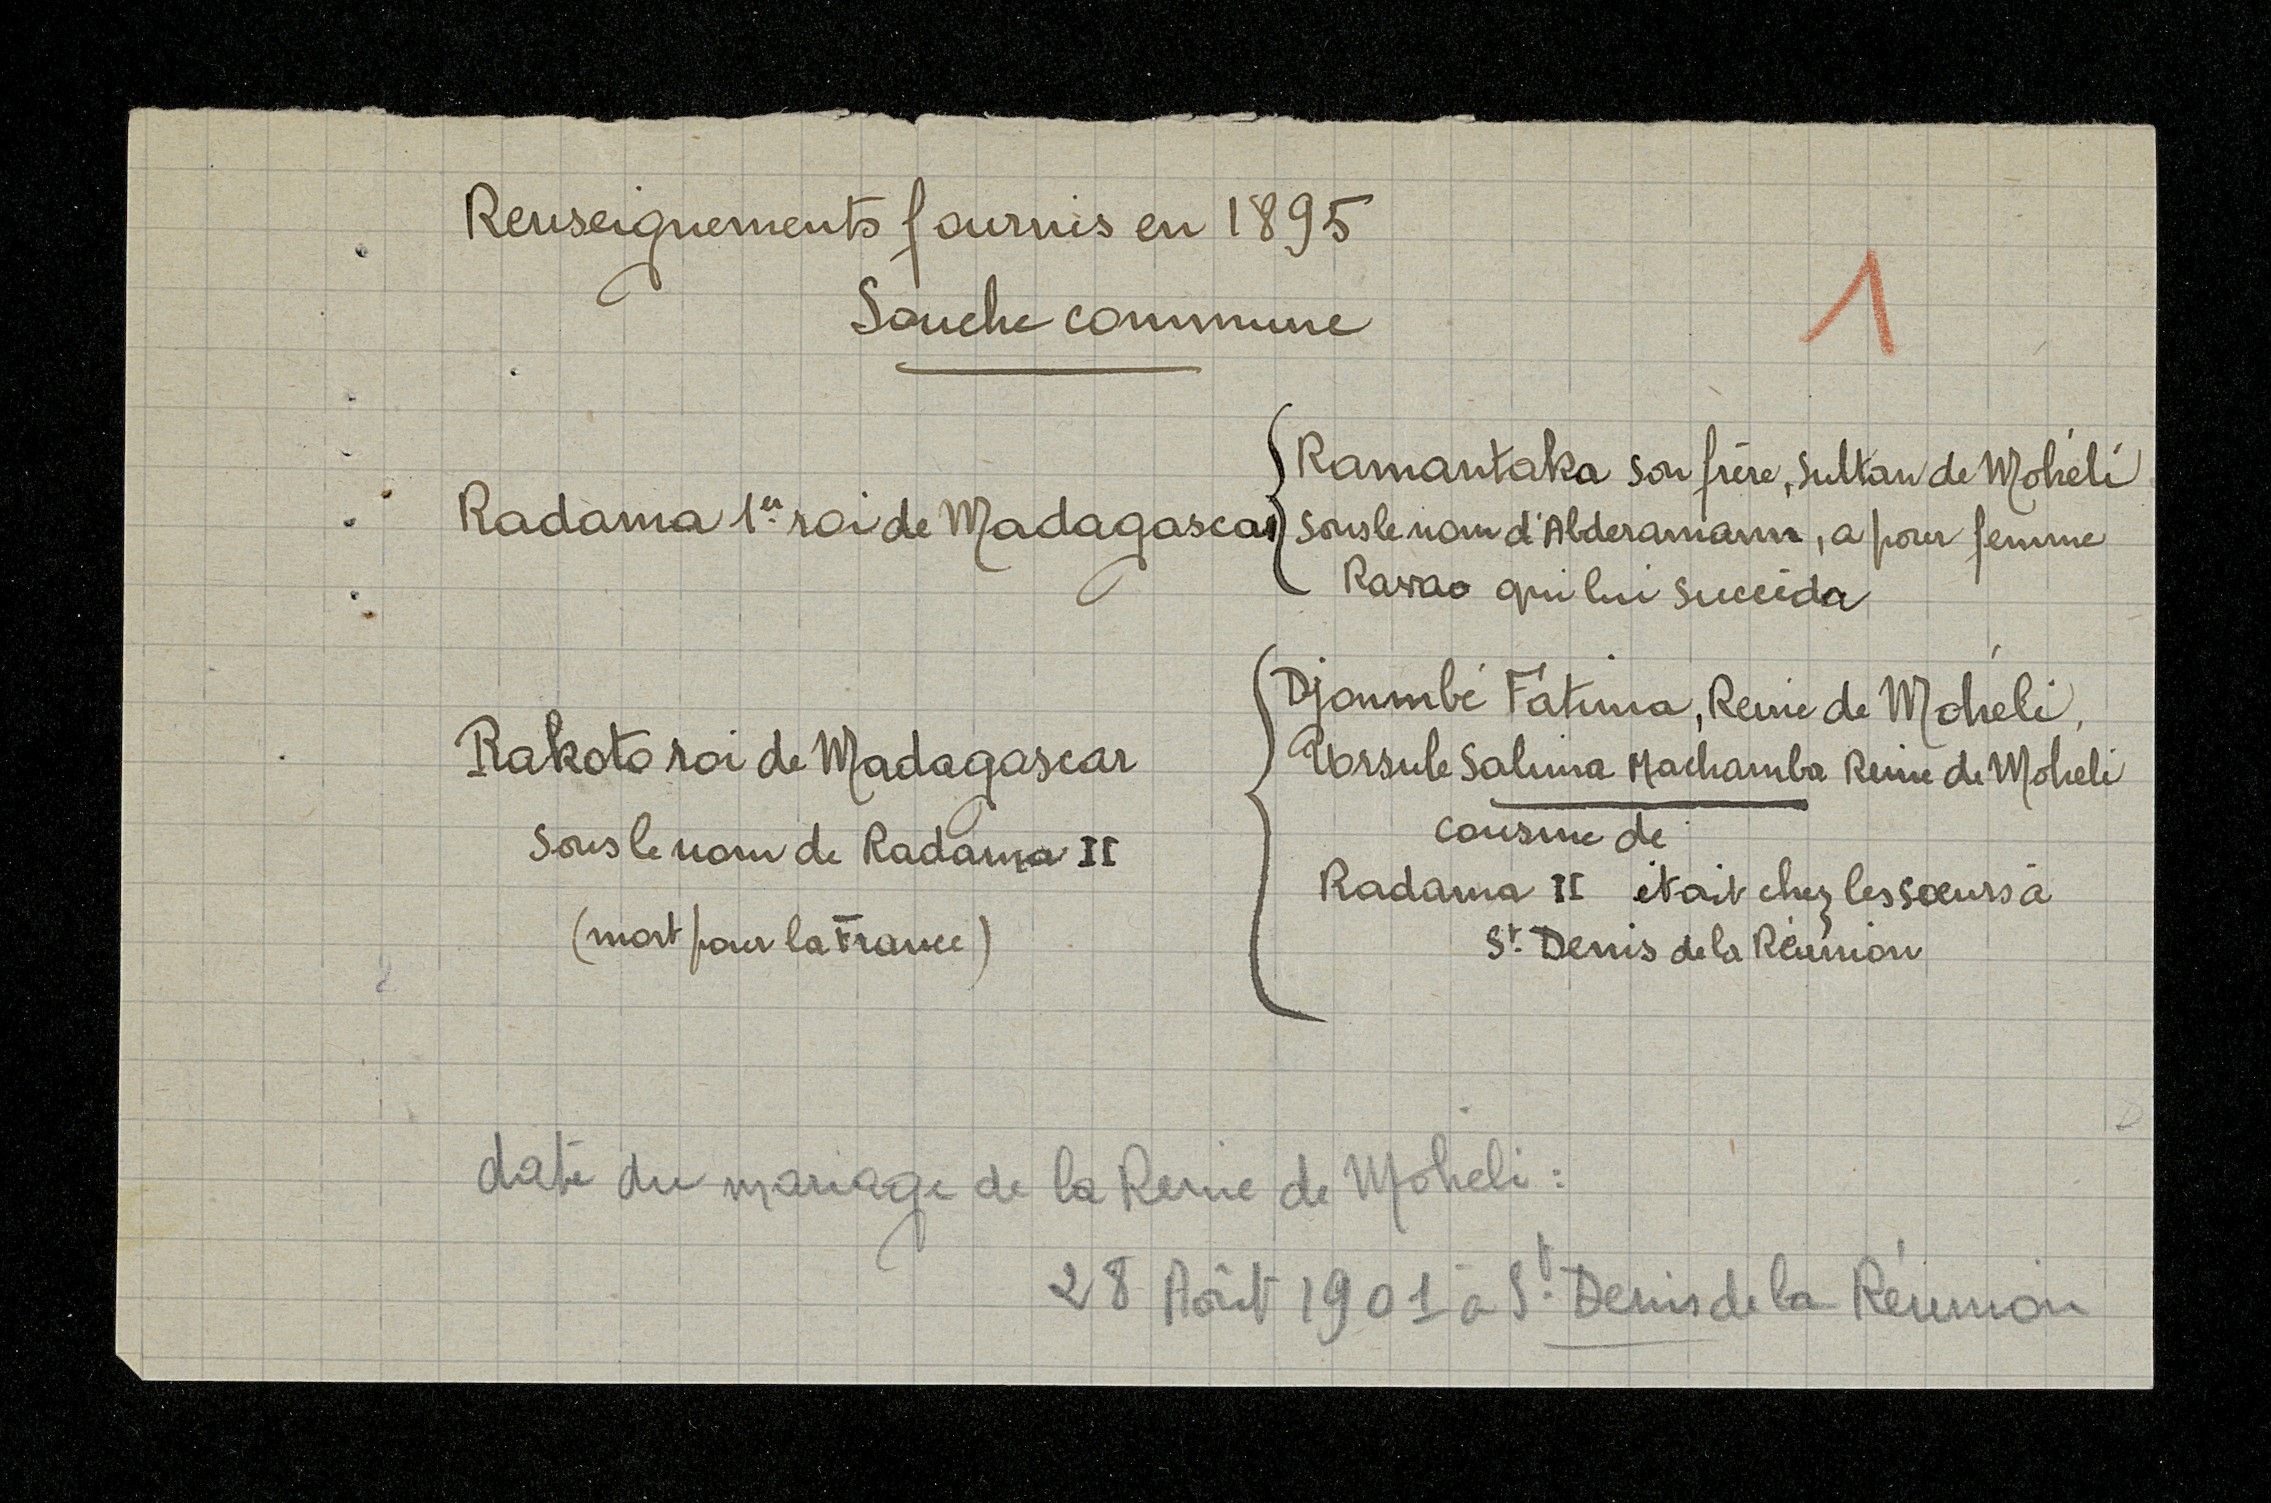 Renseignements fournis en 1895
Souche commune
1
Radama 1er roi de Madagascar
Ramantaka son frère, sultan de Mohéli
sous le nom d'Abderamann, a pour femme
Ravao qui lui succéda
Rakoto roi de Madagascar
sous le nom de Radama II
(mort pour la France)
Djoumbé Fatima, Reine de Mohéli,
Ursule Salima Machamba Reine de Moheli
cousine de
Radama II était chez les soeurs à
St. Denis de la Réunion
date du mariage de la Reine de Moheli :
28 Aôut 1901 à St. Denis de la Réunion